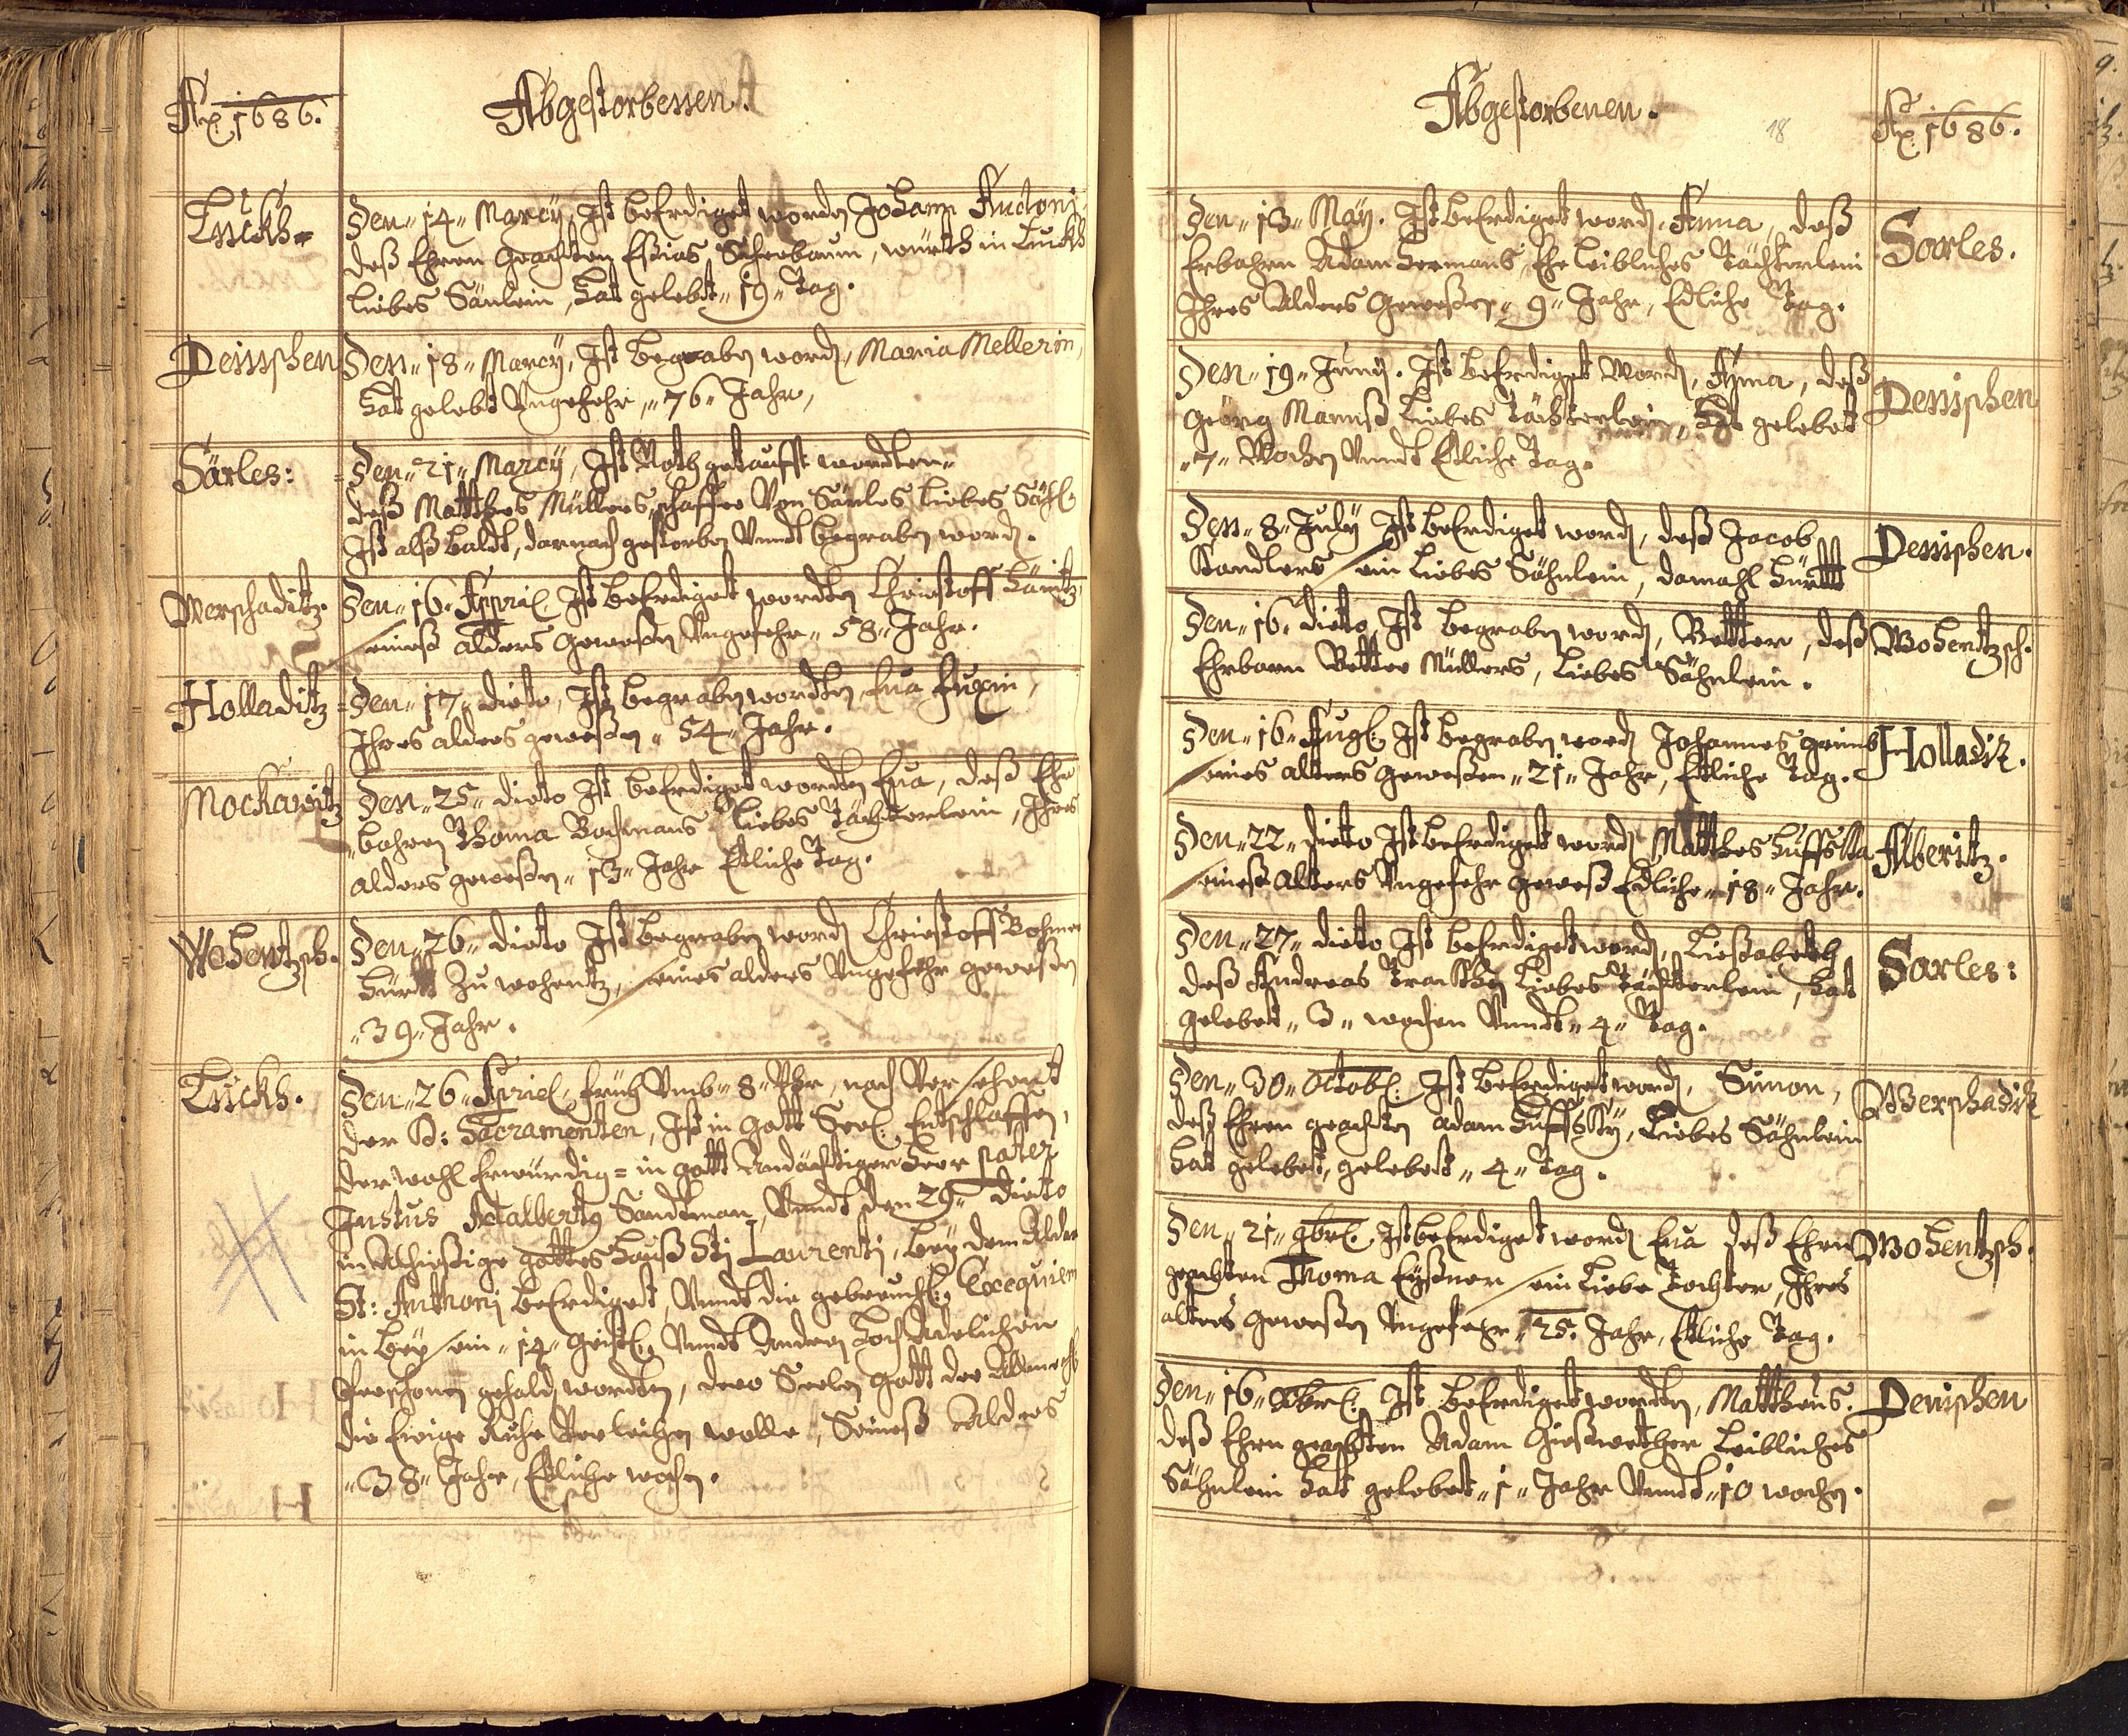 Aō 1686.
Abgestorbenen.
Luckh=
Den „14„ Marcy, Ist beErdiget worden Johann Andtoni
deß Ehren Geachten Eßias Scherbaum, würth in Luckh
liebes Sönlein, hat gelebt „19„ Tag.
Deusphen
Den „18„ Marcy, Ist begraben worden, Maria Mellerin,
hat gelebt Ungefehr, „76„ Jahr,
Särles:
Den „21„ Marcy, Ist Noth getaufft wordten„
deß Matthes Müllers, schaffer Von Särles Liebes
Ist alß baldt, darnach gestorben Unndt begraben worden.
Werschaditz.
Den „16. Appril. Ist beErdiget wordten Christoff
seines alders geweßen Ungefehr „58„ Jahr.
Holladitz
Den „17„ dieto, Ist begraben wordten, Eua Fuxin,
Ihres alders geweßen „54„ Jahr.
Mockawitz
Den „25„ dieto Ist beErdiget wordten Eua, deß Ehr
„bahren Thoma Bochmans liebes Töchterlein, Ihres
alders geweßen „13„ Jahr Etliche Tag.
Wohentzsch.
Den „26„ dieto Ist begraben worden Christoff Bohmer
Hürtt Zu wohentz, seines alders Ungefehr geweßen
„39„ Jahr.
Luckh.
Den „26„ Apriel, früh Umb „8„ Uhr, nach Versehent
der H: Sacramenten, Ist in Gott Seel: Entschlaffen,
der wohl Erwürdig= in gott Andächtiger Herr pater
Justus Adalbertq Sandtman, Unndt den 29„ dieto
in Alhießige gottes Hauß Sti Laurentj, bey dem Alder
St: Anthonj beErdiget, Unndt die gebreuchl: Execquiem
in bey sein „14„ Geistl: Unndt Andern Hoch Adelichen
Perschonen gehalden wordten, dero Seelen Gott der
die Ewige Ruhe Verleihen wolle, Seines Alders
„38„ Jahr, Etliche wochen.
Abgestorbenen.
18
Aō 1686.
Den „13„ May. Ist beErdiget worden, Anna, deß
Erbahrn Adam Hermans, Ehe leibliches Töchterlein
Ihres Alders Geweßen „9„ Jahr, Etliche Tag.
Sarles.
Den „19„ Juny. Ist beErdiget Worden, Anna, deß
Georg Manß Liebes Töchterlein, Hat gelebet
„7„ Wochen Unndt Etliche Tag.
Deusphen
Den „8„ July Ist beErdiget worden, deß Jacob
Kandlers, ein Liebes Söhnlein, damahl Hürtt
Deusphen.
Den „16„ dieto, Ist begraben worden, Vetter, deß
Ehrbarn Vetter Müllers, Liebes Söhnlein.
Wohentzsch.
Den „16„ Augl: Ist begraben worden Johannes Grimb
seines alters geweßen „21„ Jahr, Ettliche Tag.
Holladitz.
Den „22„ dieto Ist beErdiget worden Matthes
seineß Alters Ungefehr geweß Etliche „18„ Jahr.
Alberitz.
Den „27„ dieto Ist beErdiget worden, Ließabeth
deß Andreas Liebes Töchterlein, hat
gelebet „3„ wochen Unndt „4„ Tag.
Sarles:
Den „30„ Octobl: Ist beErdiget worden, Simon,
deß Ehren geachten Adam Liebes Söhnlein
hat gelebet, gelebett „4„ Tag.
Werschaditz
Den „21„ 9brl: Ist beErdiget worden Eua deß Ehrn
geachten Thoma Eyßner ein Liebe Tochter, Ihres
alters geweßen Ungefehr „25. Jahr, Etliche Tag.
Wohentzsch.
Den „16„ Xbrl: Ist beErdiget wordten, Mattheus.
deß Ehrn geachten Adam Gießwether Leibliches
Söhnlein hat gelebet „1„ Jahr Unndt „10 wochen.
Deusphen